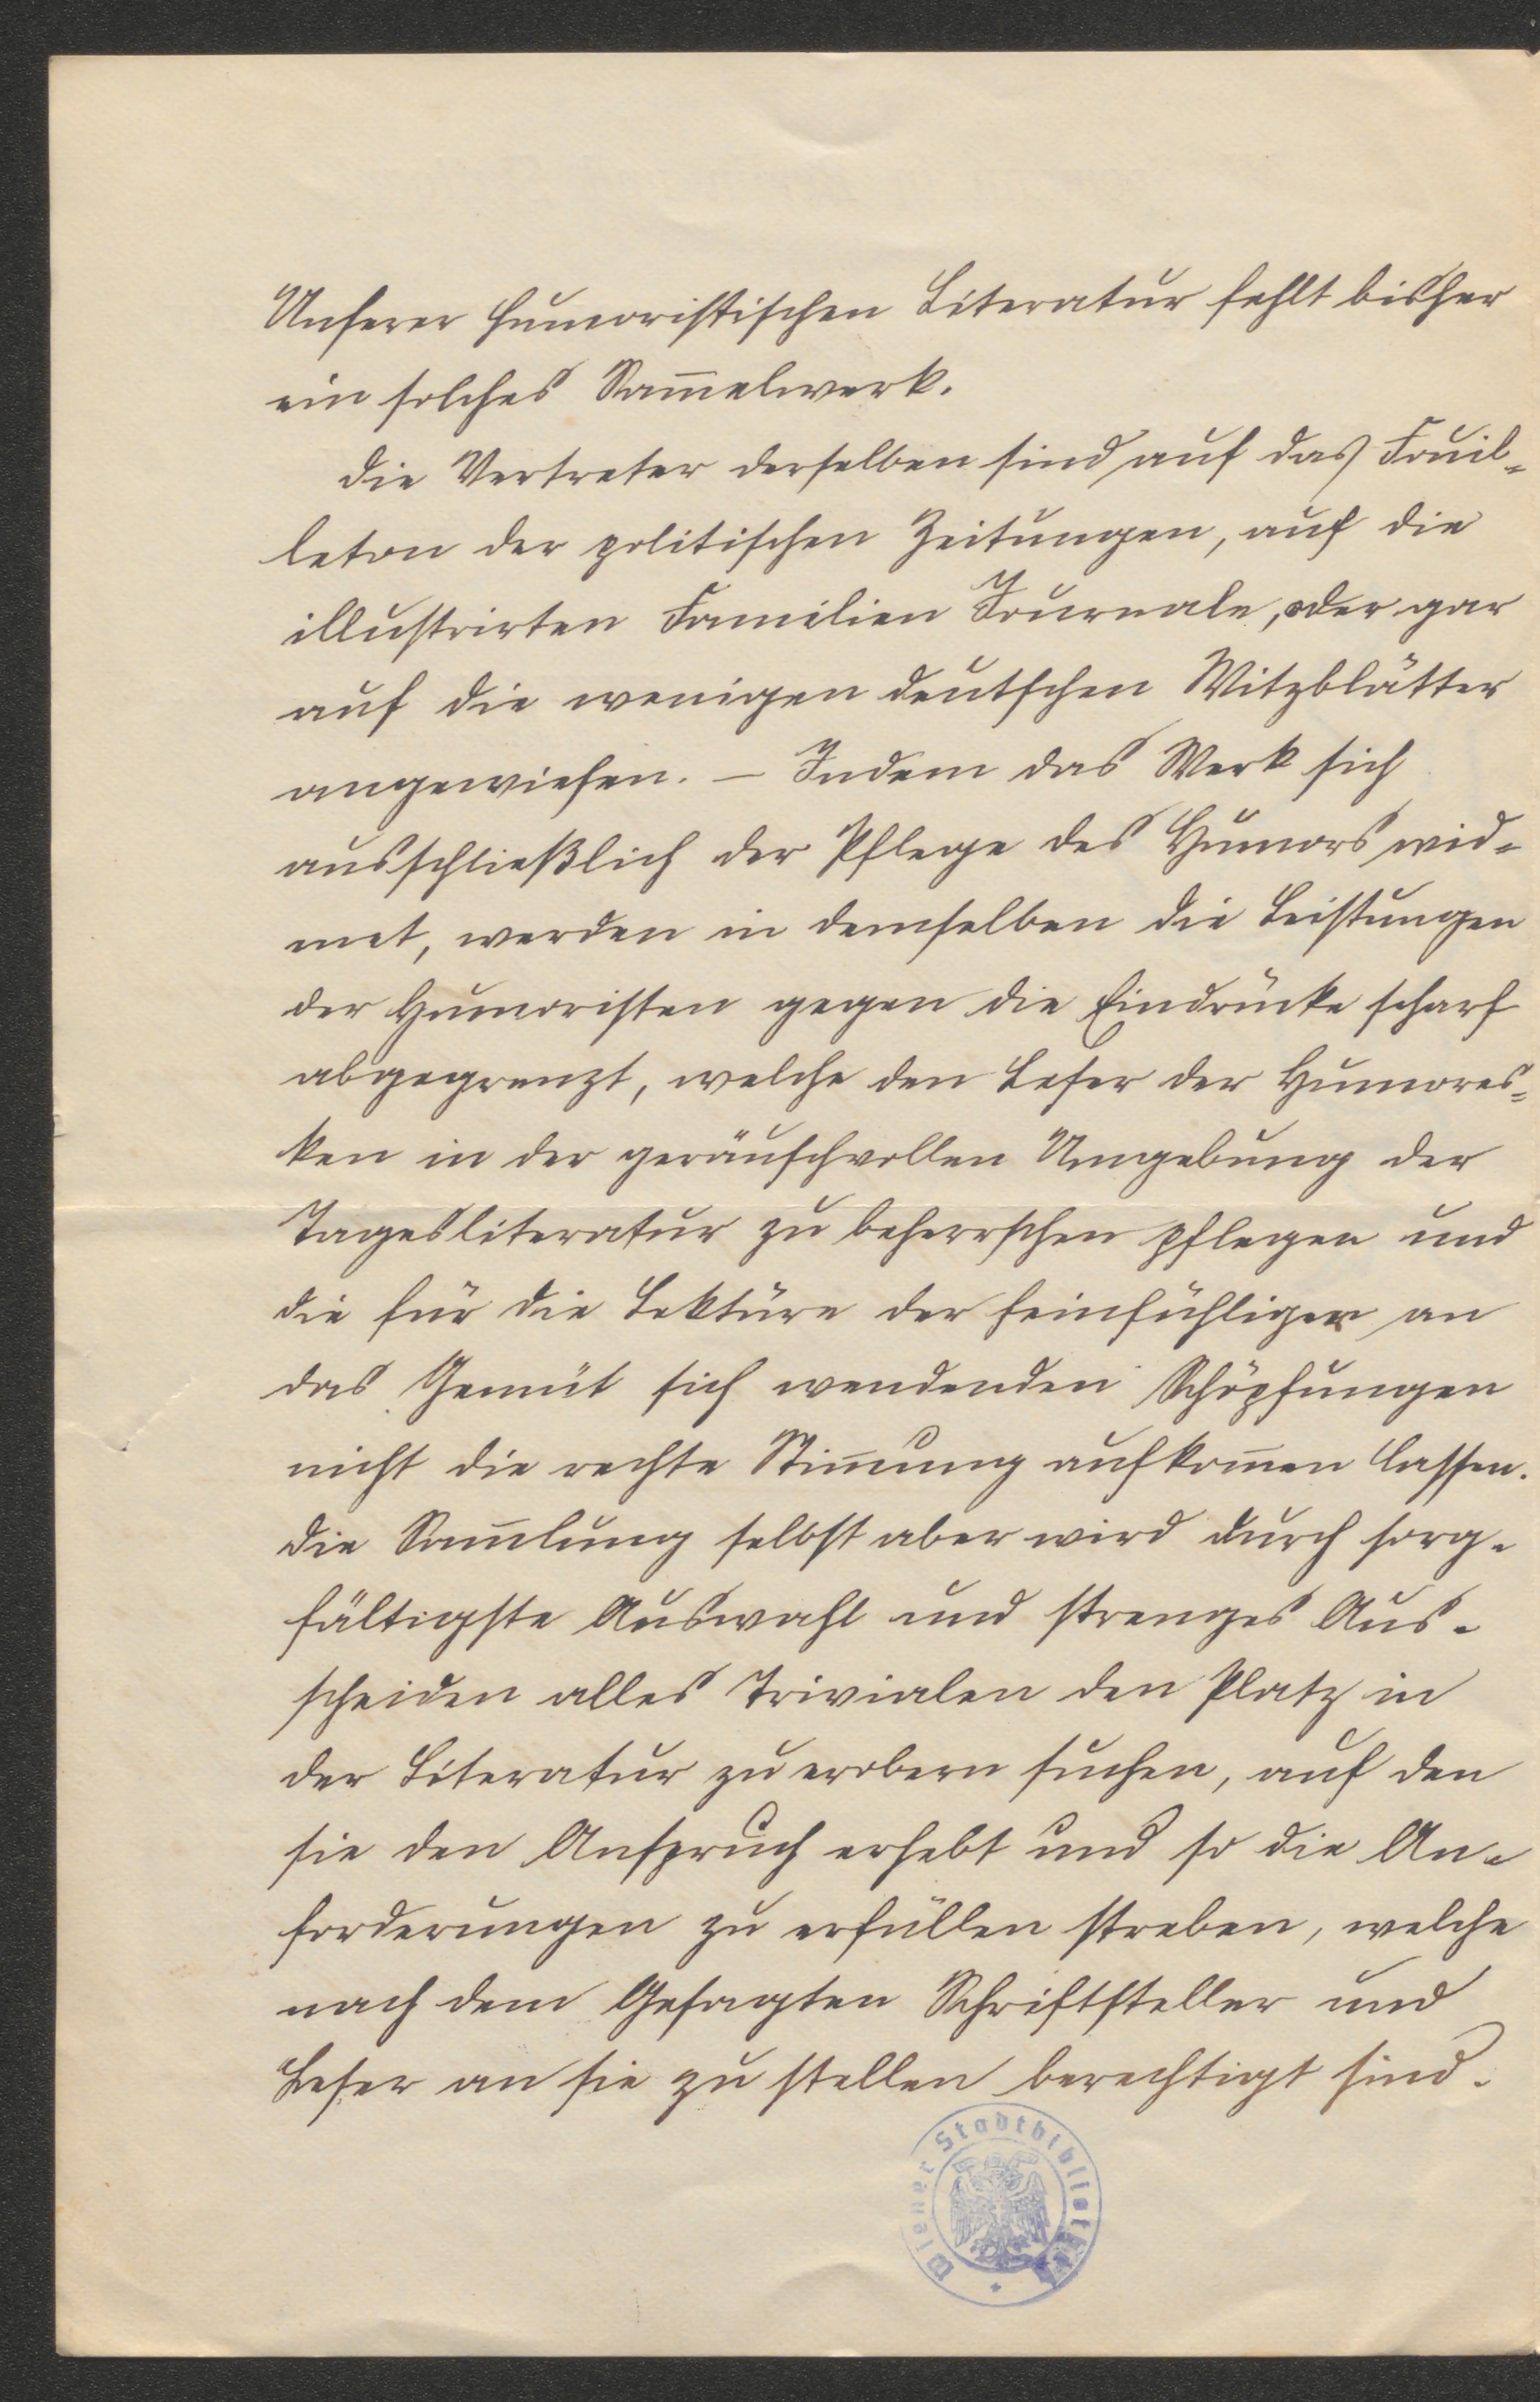 Unserer humoristischen Literatur fehlt bisher
ein solches Sam̅elwerk.
Die Vertreter derselben sind auf das Feuil=
leton der politischen Zeitungen, auf die
illustrirten Familien Journale, oder gar
auf die wenigen deutschen Witzblätter
angewiesen. – Indem das Werk sich
ausschließlich der Pflege des Humors wid=
met, werden in demselben die Leistungen
der Humoristen gegen die Eindrücke scharf
abgegrenzt, welche den Leser der Humores=
ken in der geräuschvollen Umgebung der
Tagesliteratur zu beherrschen pflegen und
die für die Lektüre der feinfühligen an
das Gemüt sich wendenden Schöpfungen
nicht die rechte Stim̅ung aufkom̅en lassen.
Die Sam̅lung selbst aber wird durch sorg=
fältigste Auswahl und strenges Aus=
scheiden alles Trivialen den Platz in
der Literatur zu erobern suchen, auf den
sie den Anspruch erhebt und so die An=
forderungen zu erfüllen streben, welche
nach dem Gesagten Schriftsteller und
Leser an sie zu stellen berechtigt sind.
Wiener Stadtbibliothek